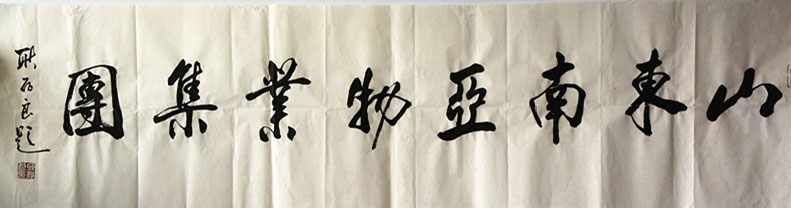 山東南亞物業集團
良題